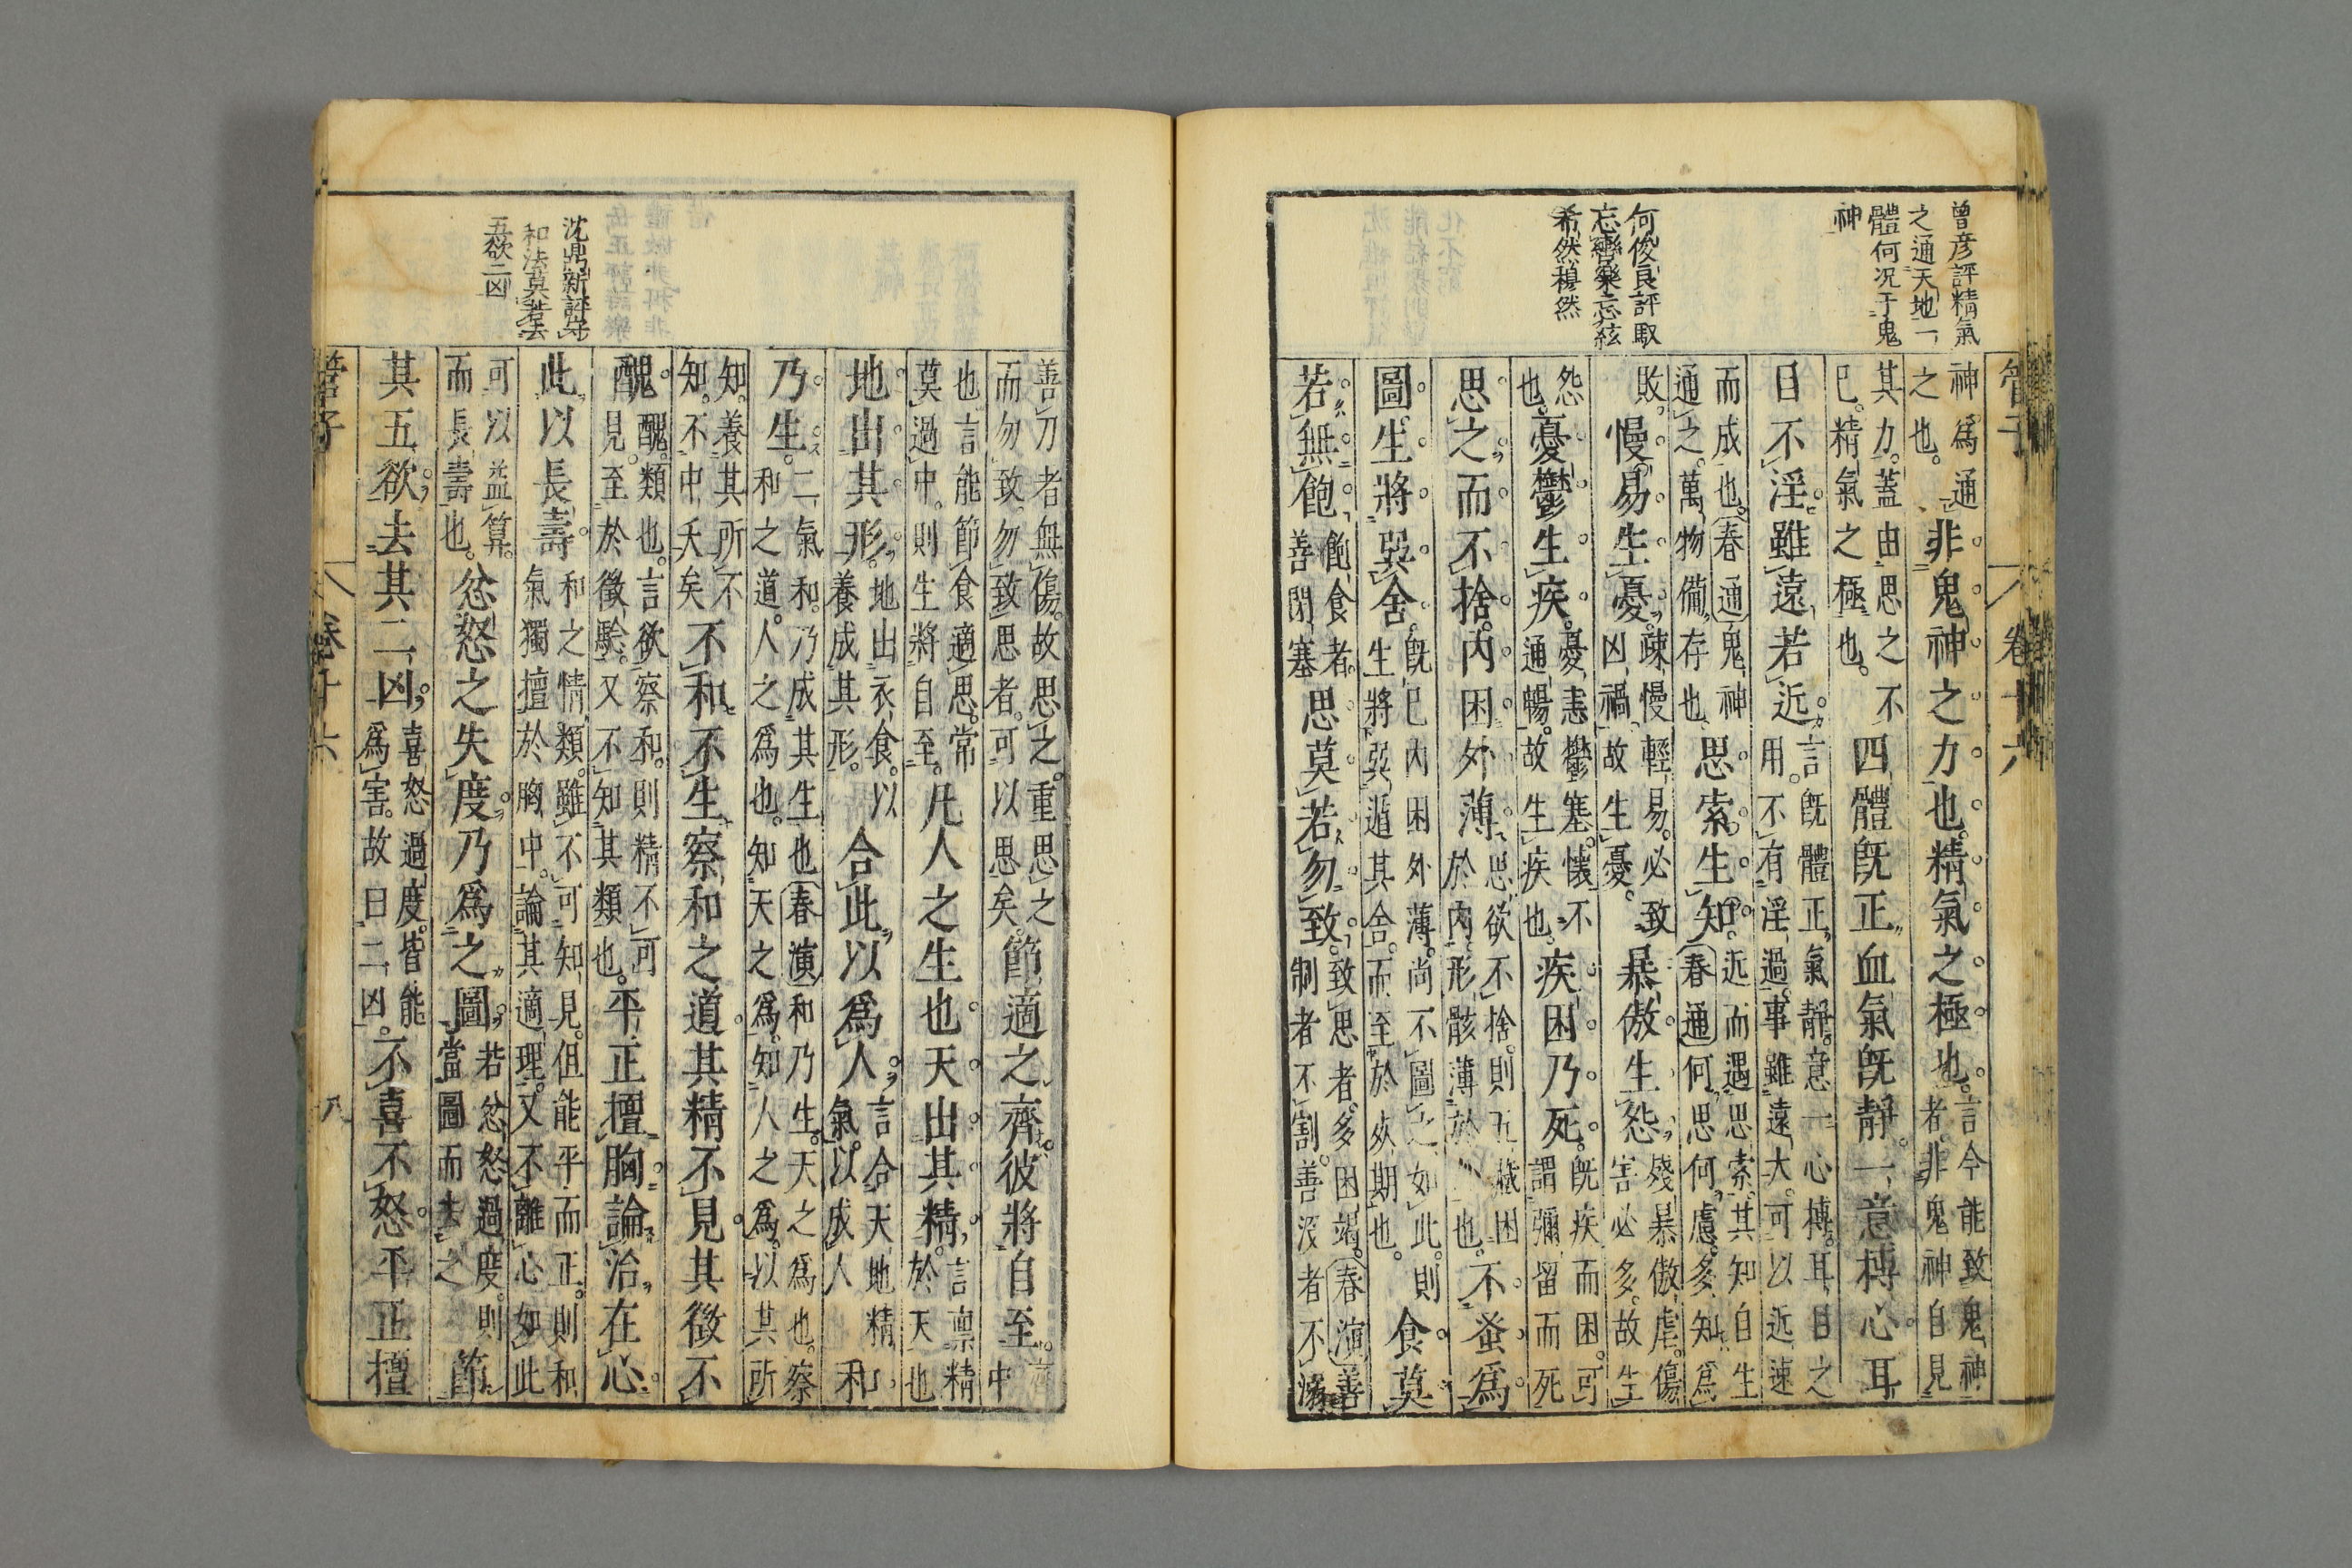 曾彦評精氣
之通天地一
體何况于鬼
神
何俊良評取
忘彎樂忘絃
希然穆然
管子
卷十六
神爲通
之也。非鬼神之力也。精氣之極也。言今能致鬼神
者。非鬼神自見
其力。蓋由思之不
已。精氣之極也。四體旣正。血氣旣靜。一意摶心。耳
目不淫。雖遠若近。言旣體正。氣靜。意一心摶。耳目之
用。不有淫過。事雖遠大。可以近速
而成也。春通鬼神
通之。萬物備存也。思索生知。近而遇思索。其知自生
春通何思何慮。多知爲
敗。慢易生憂。疎慢輕易。必致
凶禍。故生憂。暴傲生怨。殘暴傲虐。傷
害必多。故生
怨
也。憂鬱生疾。憂恚鬱塞。懷不
通暢。故生疾也。疾困乃死。旣疾而困。可
謂彌留而死
思之而不捨。内困外薄。思欲不捨。則五藏困
於内。形骸薄於外也。不蚤爲
圖。生將巽舍。旣已内困外薄。尚不圖之。如此。則
生將巽遁其舍。而至於死期也。食莫
若無飽。飽食者。
善閉塞思莫若勿致。致思者。多困竭。春演善
制者不割。善沒者不溺
善刀者無傷。故思之。重思之
而勿致。勿致思者。可以思矣。節適之齊。彼將自至。言
中
也言能節食適思。常
莫過中。則生將自至。凡人之生也。天出其精。言禀精
於天也
地出其形。地出衣食。以
養成其形。合此以爲人。言合天地精
氣。以成人和
乃生。二氣和。乃成其生也春演和乃生。天之爲也。察
和之道。人之爲也。知天之爲。知人之爲。以其所
知。養其所不
知。不中夭矣不和不生。察和之道。其精不見。其徵不
醜。醜。類也。言欲察和。則精不可
見。至於徵驗。又不知其類也。平正擅胸。論治在心。
此以長壽。和之情類。雖不可知見。但能平而正。則和
氣獨擅於胸中。論其適理。又不離心如此
可以益算。
而長壽也。忿怒之失度。乃爲之圖。若忿怒過度。則
當圖而去之節
其五欲。去其二凶。喜怒過度。皆能
爲害。故曰二凶。不喜不怒。平正擅
沈鼎新評守
和法莫若去
五欲二凶
管子
卷十六
八